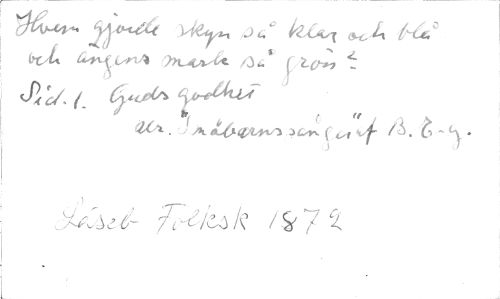 Hvem gjorde skyn så klar och blå
och ängens mark så grön?
Sid. 1. Guds godhet
ur. "Småbarnssånger" af B. E-g.
Läseb Folksk 1872